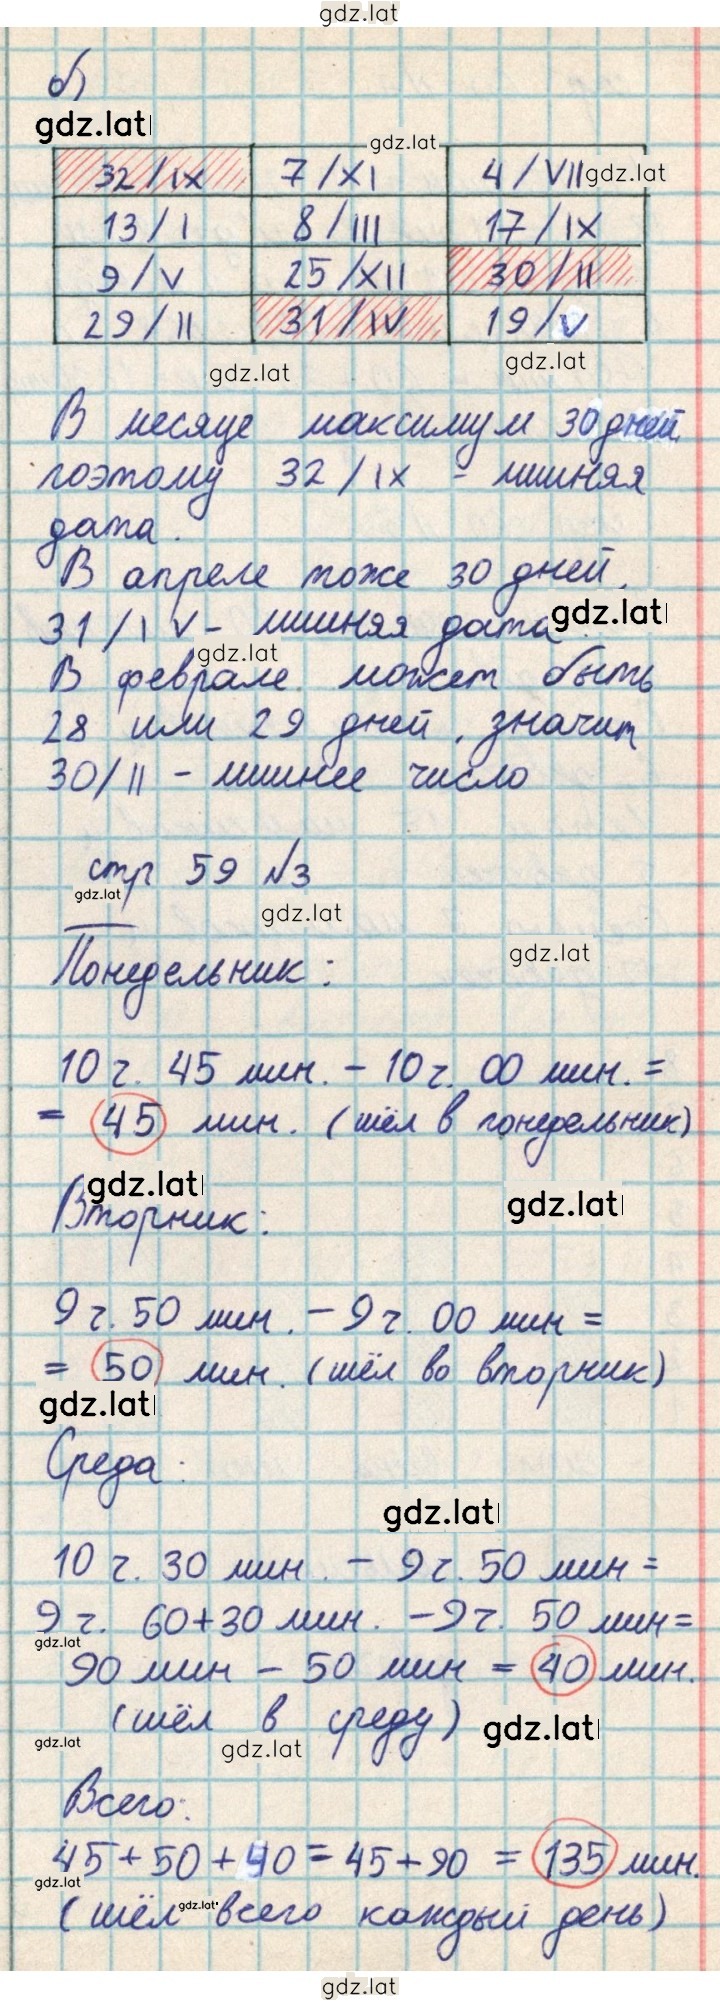 gdz.lat
б)
gdz.lat
gdz.lat
32/IX 7/XI 4/VII gdz.lat
13/I 8/III 17/IX
9/V 25/XII 30/II
29/II 31/IV 19/V
gdz.lat gdz.lat
В месяце максимум 30 дней
поэтому 32/IX - лишняя
дата.
В апреле тоже 30 дней.
31/IV - лишняя дата. gdz.lat
gdz.lat
В феврале может быть
28 или 29 дней, значит
30/II - лишнее число
стр 59 №3
gdz.lat gdz.lat
Понедельник: gdz.lat
10 ч. 45 мин. - 10 ч. 00 мин. =
= 45 мин. (шёл в понедельник)
gdz.lat gdz.lat
Вторник:
9 ч. 50 мин. - 9 ч. 00 мин =
= 50 мин. (шёл во вторник)
gdz.lat
Среда:
gdz.lat
10 ч. 30 мин. - 9 ч. 50 мин =
9 ч. 60+30 мин. - 9 ч. 50 мин =
gdz.lat
90 мин - 50 мин = 40 мин.
(шёл в среду) gdz.lat
gdz.lat gdz.lat
Всего:
45+50+40 = 45+90 = 135 мин.
gdz.lat
(шёл gdz.lat всего каждый день)
gdz.lat